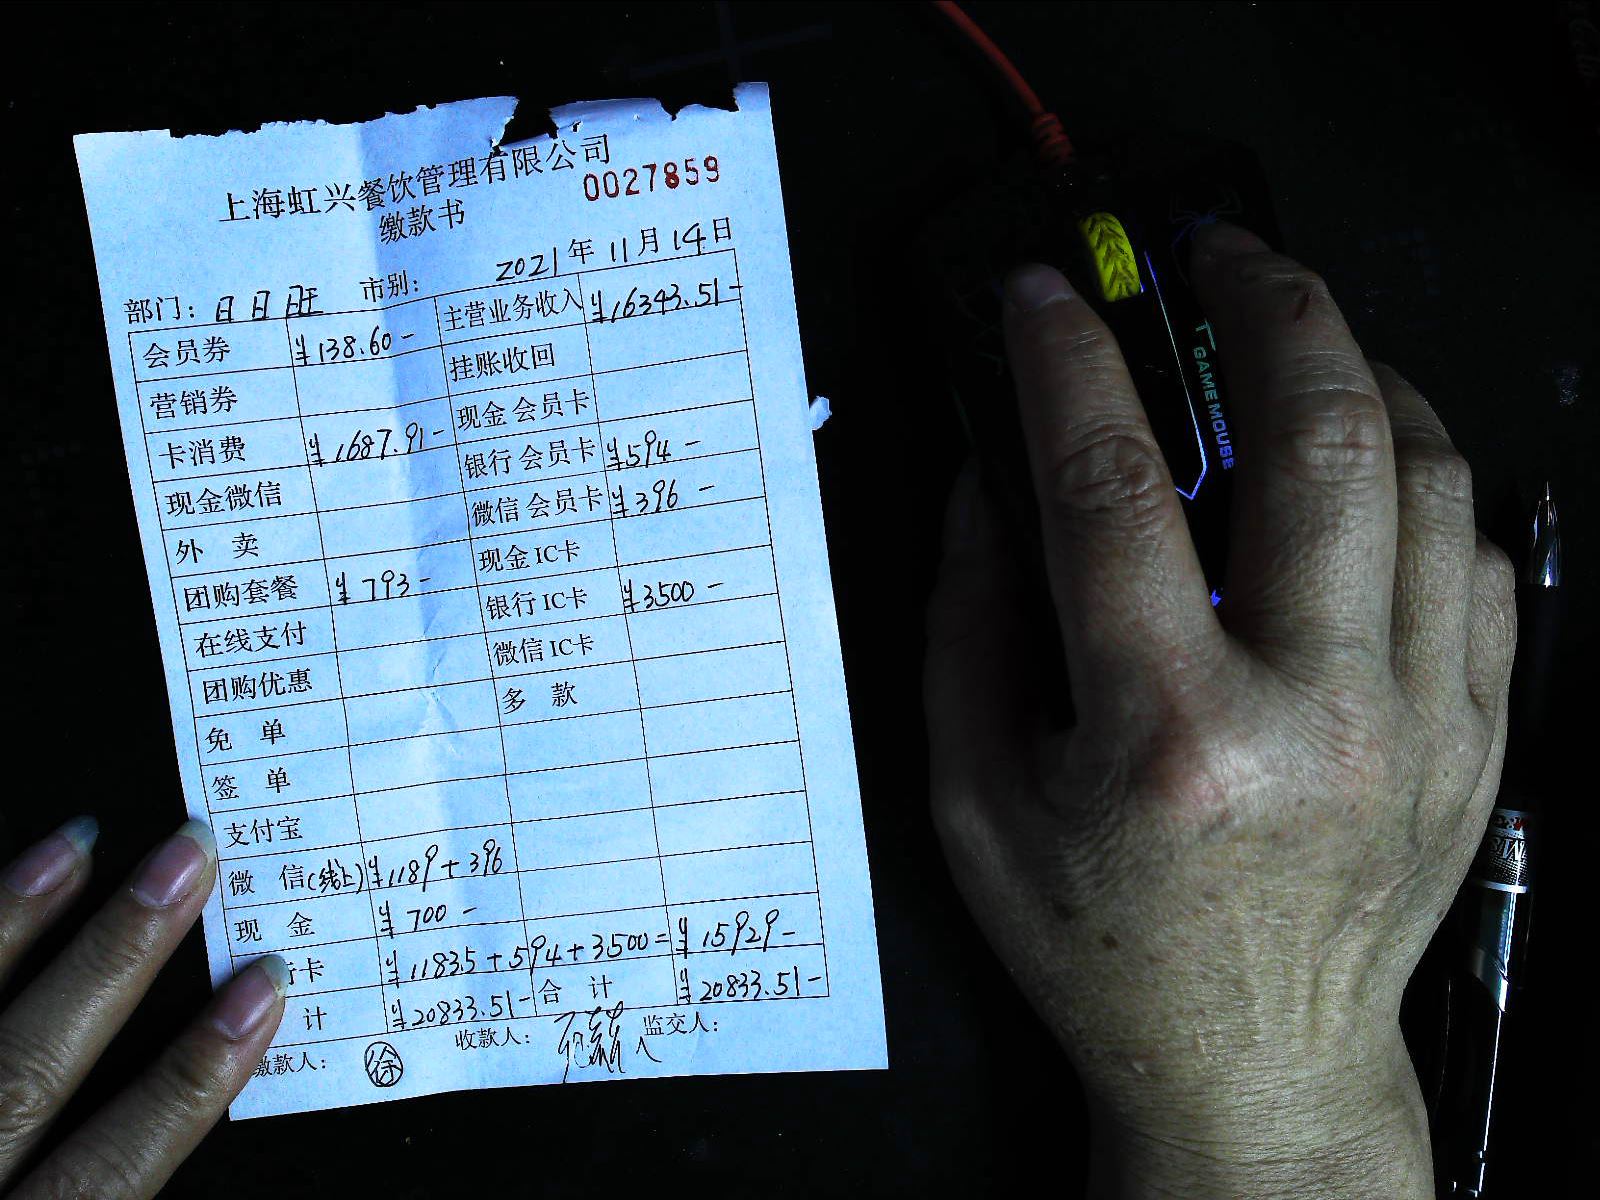 上海虹兴餐饮管理有限公司
0027859
缴款书
2021年11月14日
部门：日日旺 市别：
会员券 ¥138.60- 主营业务收入 ¥16343.51-
营销券 挂账收回
卡消费 ¥1687.91- 现金会员卡
现金微信 银行会员卡 ¥594-
外 卖 微信会员卡 ¥396-
团购套餐 ¥793- 现金IC卡
在线支付 银行IC卡 ¥3500-
团购优惠 微信IC卡
免 单 多 款
签 单
支付宝
微 信(线上) ¥1189+396
现 金 ¥700-
行卡 ¥11835+594+3500= ¥15929-
计 ¥20833.51- 合 计 ¥20833.51-
缴款人： 徐 收款人： 监交人：
GAME MOUSE